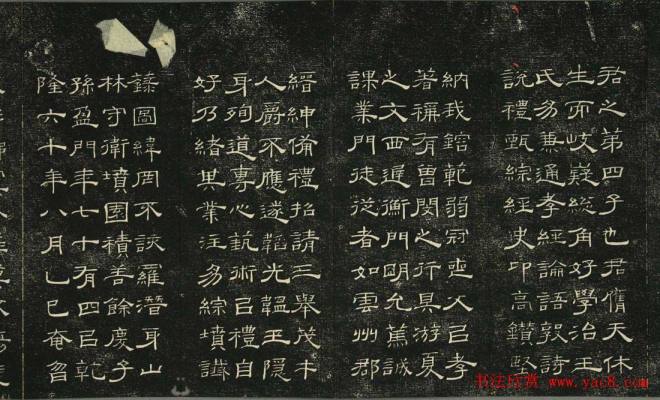 君之第四子也君膺天休
生而岐嶷總角好學治王
氏易兼通孝經論語敦詩
說禮甄綜經史卬高鑽堅
納我鎔範弱冠喪父以孝
著稱有曾閔之行具游夏
之文西遲衡門明允篤誠
課業門徒從者如雲州郡
縉紳備禮招請三舉茂才
人爵不應遂韜光韞玉隱
身殉道專心執術以禮自
好乃緒其業注易綜墳讖
錄圖緯罔不談羅潛身山
林守衛墳園積善餘慶子
孫盈門年七十有四以乾
隆六十年八月乙巳奄曶
书法欣赏 www.yac8.com